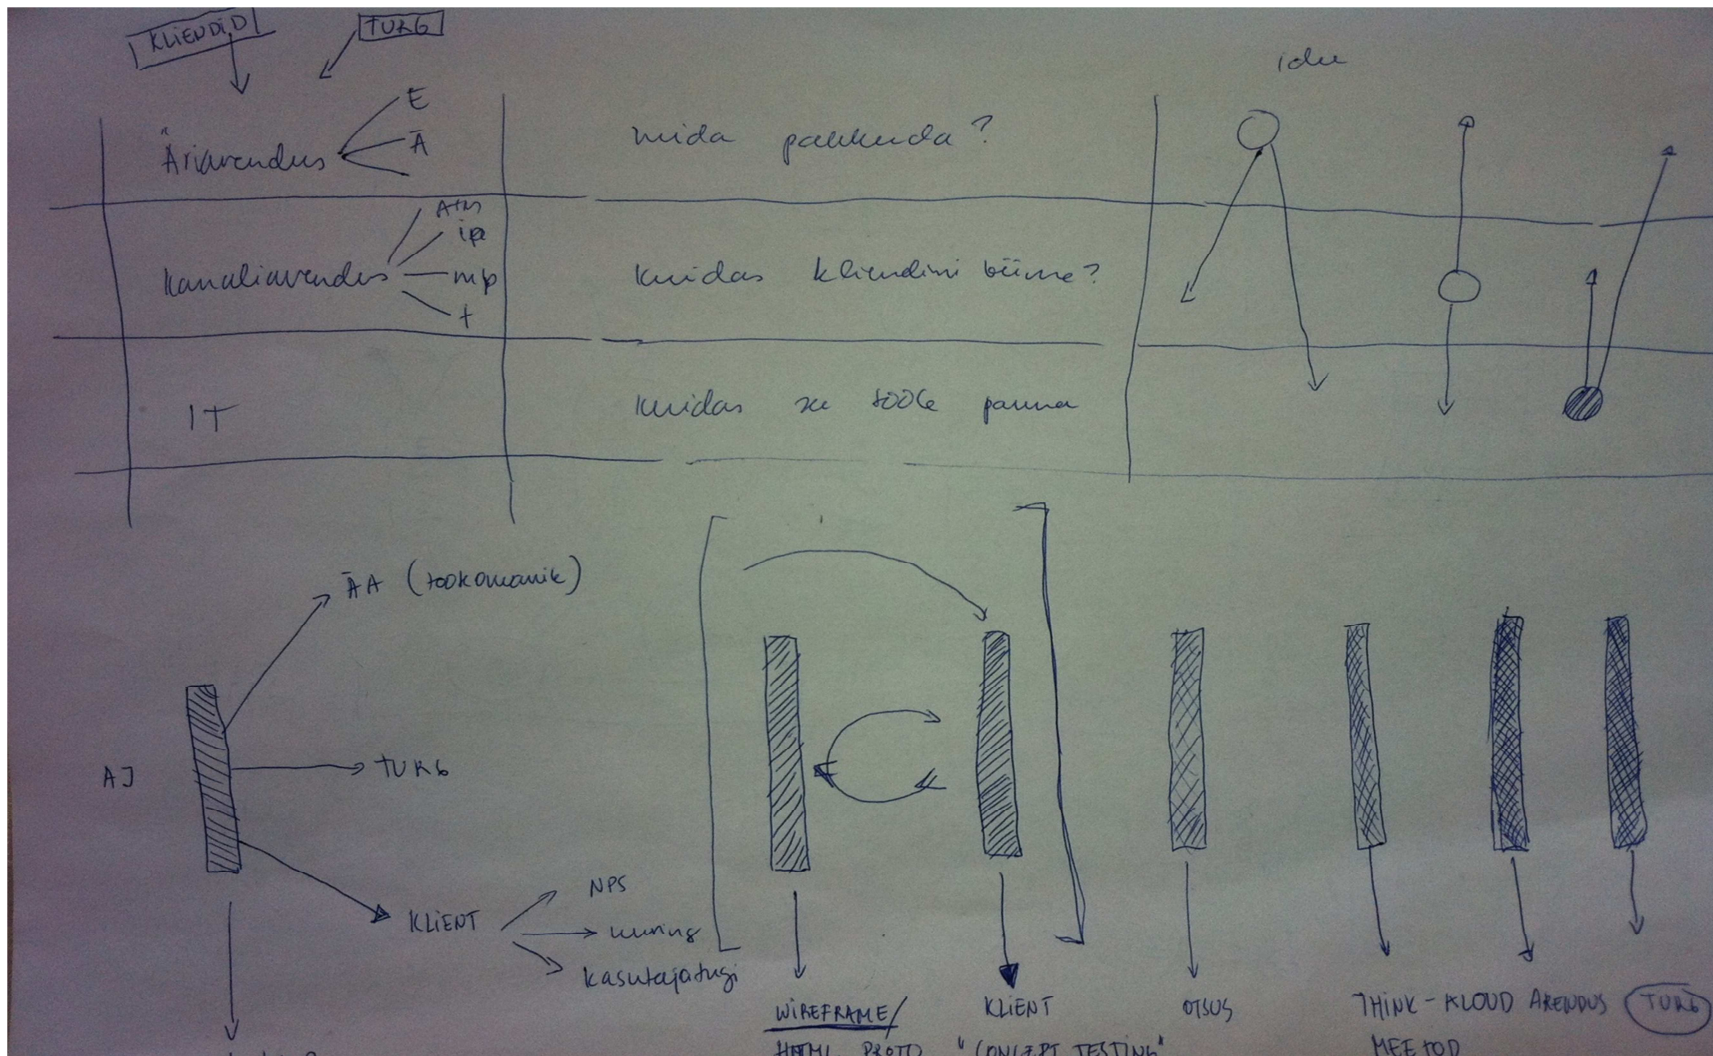 KLIENDID
TURG
idee
Äriarendus
E
Ä
mida pakkuda?
Kanaliarendus
ATM
ip
mp
t
Kuidas kliendini viime?
IT
Kuidas see tööle panna
ÄA (töökomanik)
AJ
TURG
KLIENT
NPS
uuring
kasutajatugi
WIREFRAME/
HTML PROTO
KLIENT
"CONCEPT TESTING"
OTSUS
THINK-ALOUD
MEETOD
ARENDUS
TURG